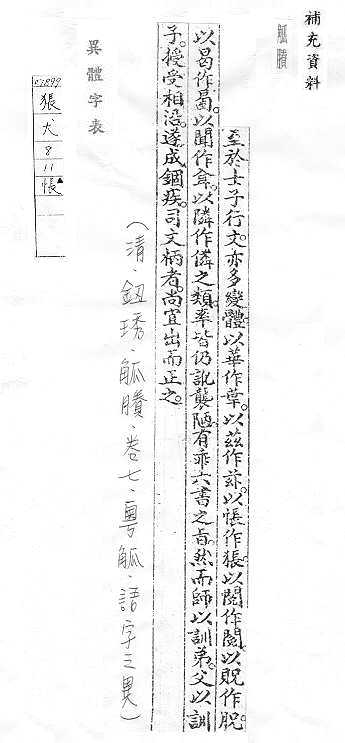 補充資料
觚賸
至於士子行文。亦多變體。以華作蕐。以茲作玆。以悵作猖。以閱作閲。以貺作脫。
以曷作曷。以聞作耷。以隣作僯之類。率皆仍訛襲陋。有乖六書之旨。然而師以訓弟。父以訓
子。授受相沿。遂成錮疾。司文柄者。尚宜出而正之。
(清.鈕琇.觚賸.卷七.粵觚.語字之異)
異體字表
猖
犬
8
11
悵